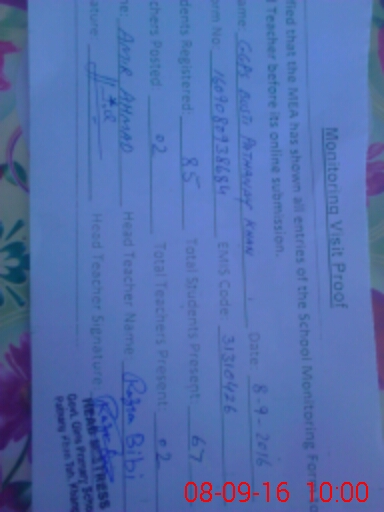 Monitoring Visit Proof
fied that the MEA has shown all entries of the School Monitoring Form to
Teacher before its online submission.
ame: GGPS BUSTI PATHANAY KHAN Date: 8-9-2016
orm No: EMIS Code: 31310426
dents Registered: 85 Total Students Present: 67
chers Posted: 02 Total Teachers Present: 02
me: AMIR AHMAD Head Teacher Name: Bibi
ature: Head Teacher Signature:
HEAD MISTRESS
Govt. Girls Primary School
08-09-16 10:00